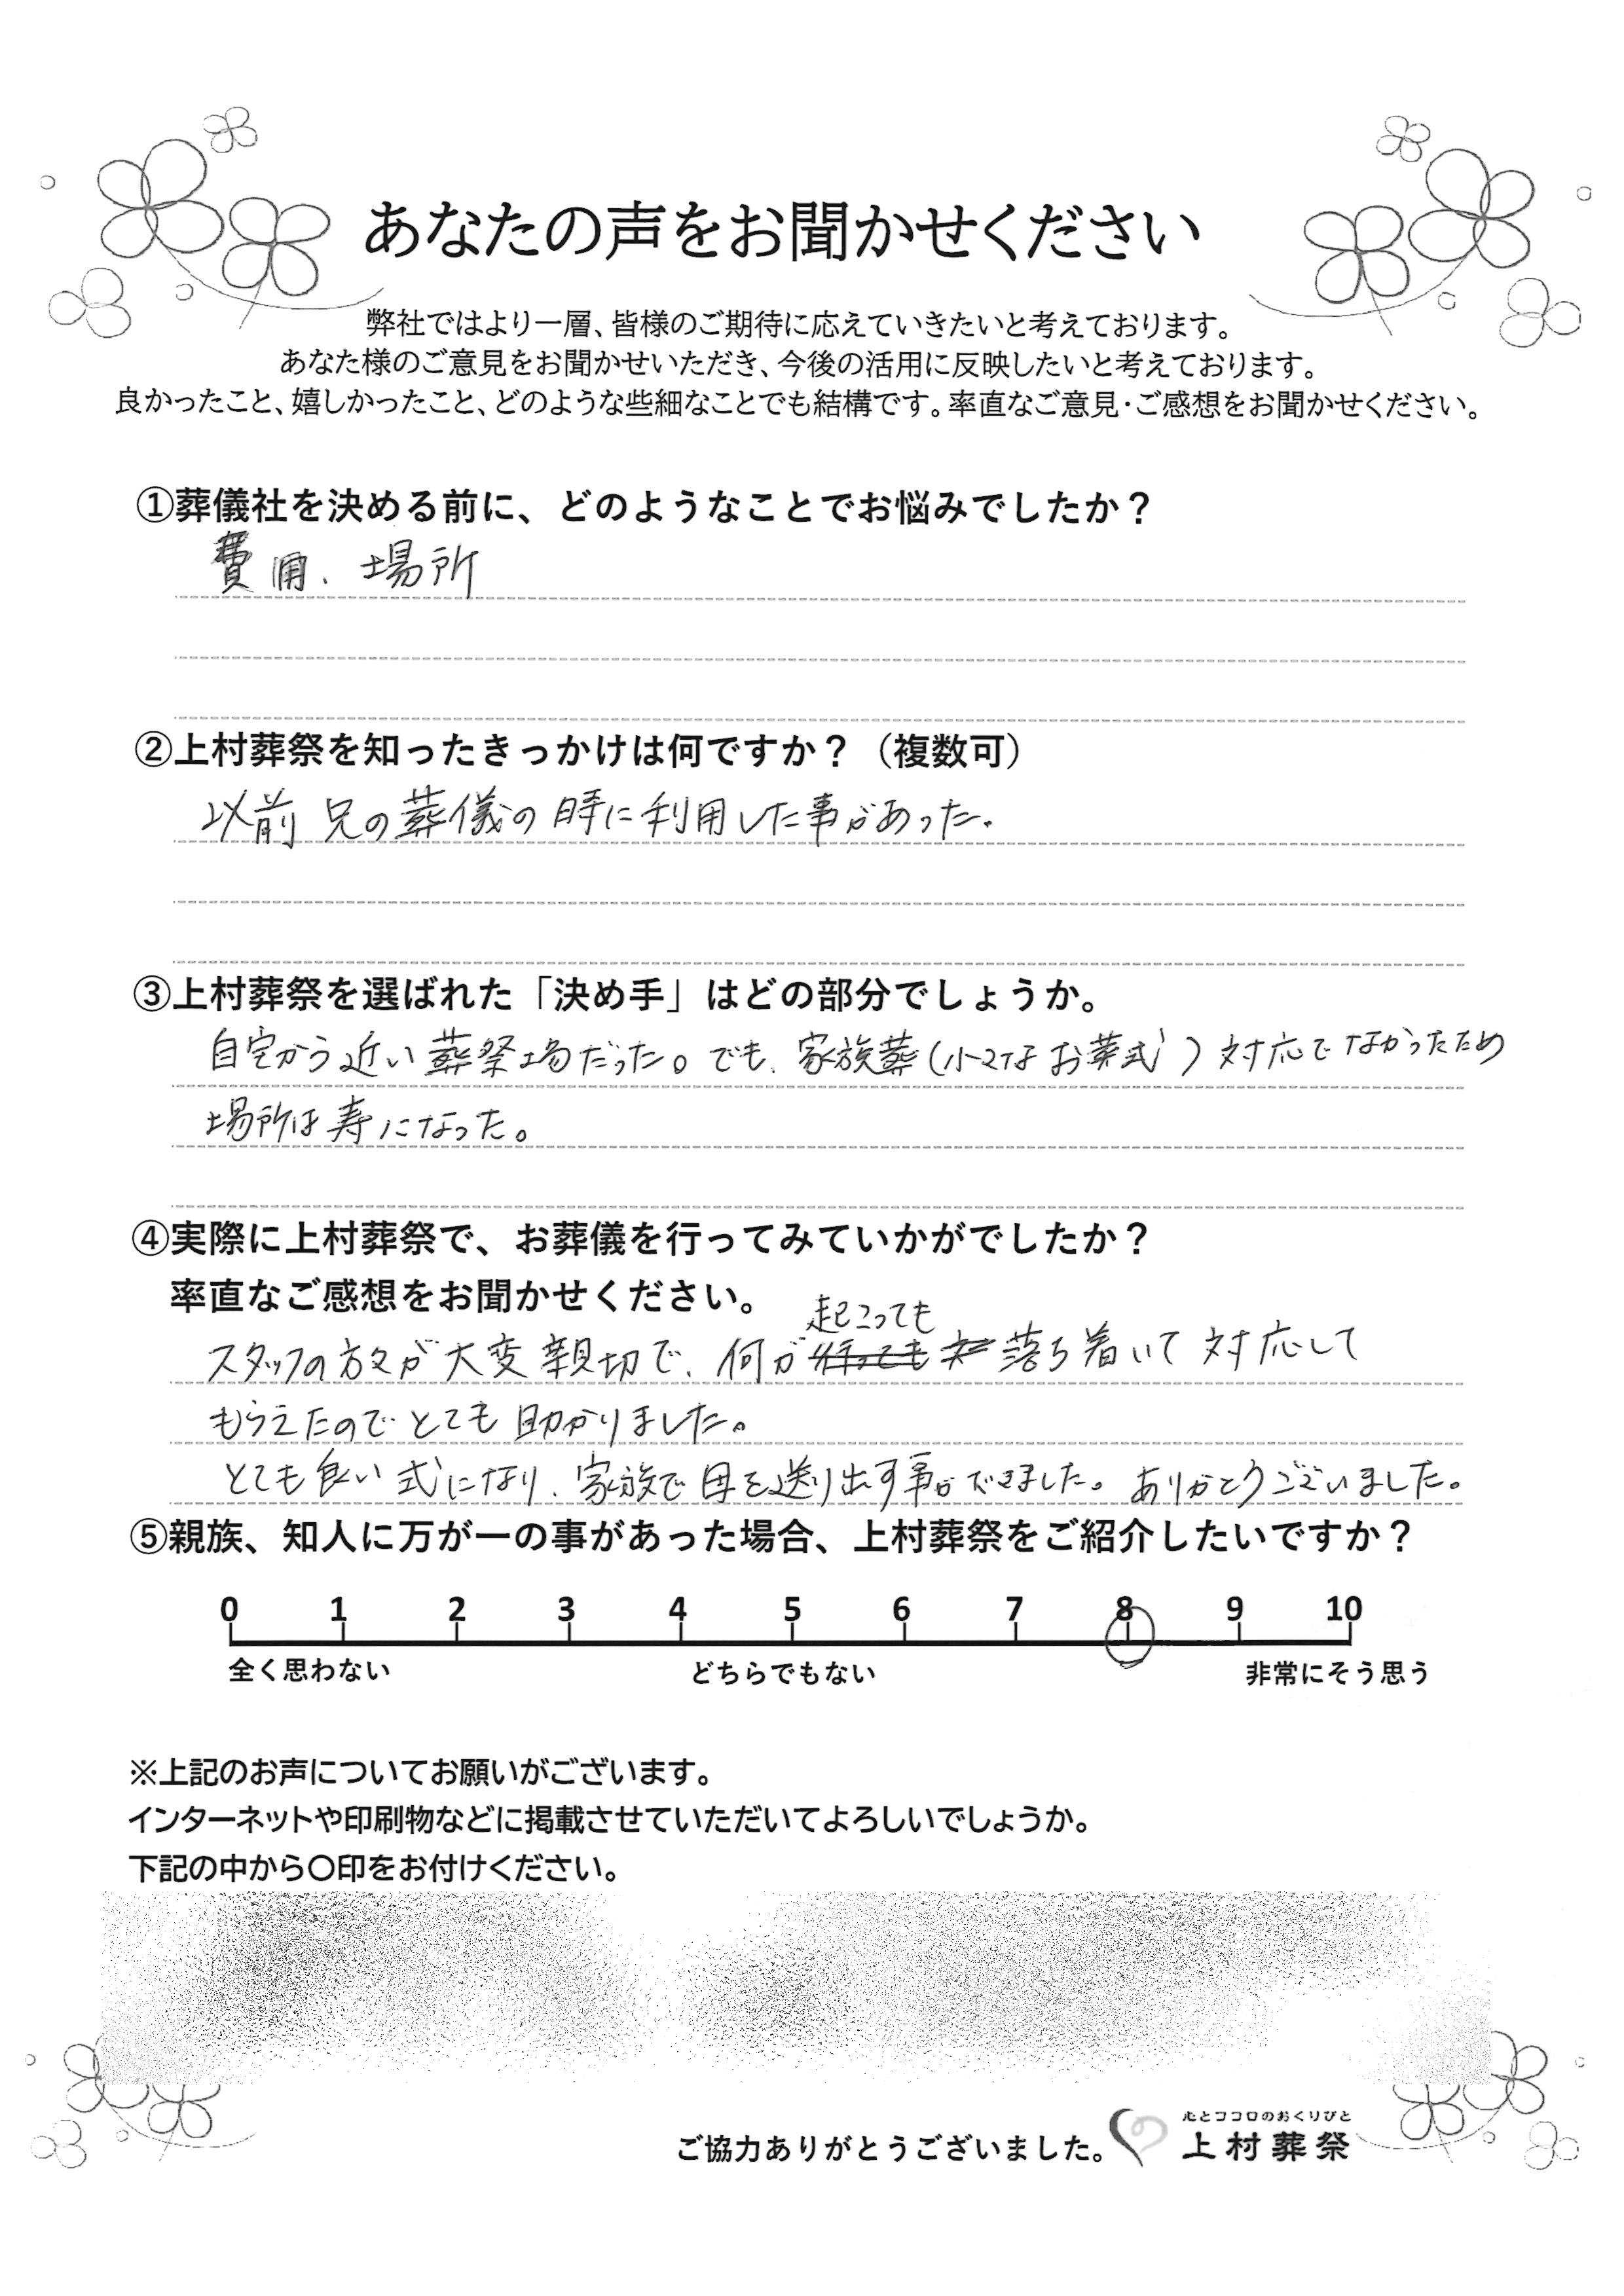 あなたの声をお聞かせください
弊社ではより一層、皆様のご期待に応えていきたいと考えております。
あなた様のご意見をお聞かせいただき、今後の活用に反映したいと考えております。
良かったこと、嬉しかったこと、どのような些細なことでも結構です。率直なご意見・ご感想をお聞かせください。
①葬儀社を決める前に、どのようなことでお悩みでしたか？
費用、場所
②上村葬祭を知ったきっかけは何ですか？（複数可）
以前 兄の葬儀の時に利用した事があった。
③上村葬祭を選ばれた「決め手」はどの部分でしょうか。
自宅から近い葬祭場だった。でも、家族葬（小さなお葬式）対応でなかったため
場所は寿になった。
④実際に上村葬祭で、お葬儀を行ってみていかがでしたか？
率直なご感想をお聞かせください。
起こっても
スタッフの方々が大変親切で、何が 落ち着いて対応して
もらえたのでとても助かりました。
とても良い式になり、家族で母を送り出す事ができました。ありがとうございました。
⑤親族、知人に万が一の事があった場合、上村葬祭をご紹介したいですか？
0 1 2 3 4 5 6 7 8 9 10
全く思わない どちらでもない 非常にそう思う
※上記のお声についてお願いがございます。
インターネットや印刷物などに掲載させていただいてよろしいでしょうか。
下記の中から〇印をお付けください。
心とココロのおくりびと
ご協力ありがとうございました。 上村葬祭